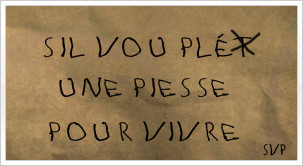 SIL VOU PLÉ
UNE PIESSE
POUR VIVRE
SVP